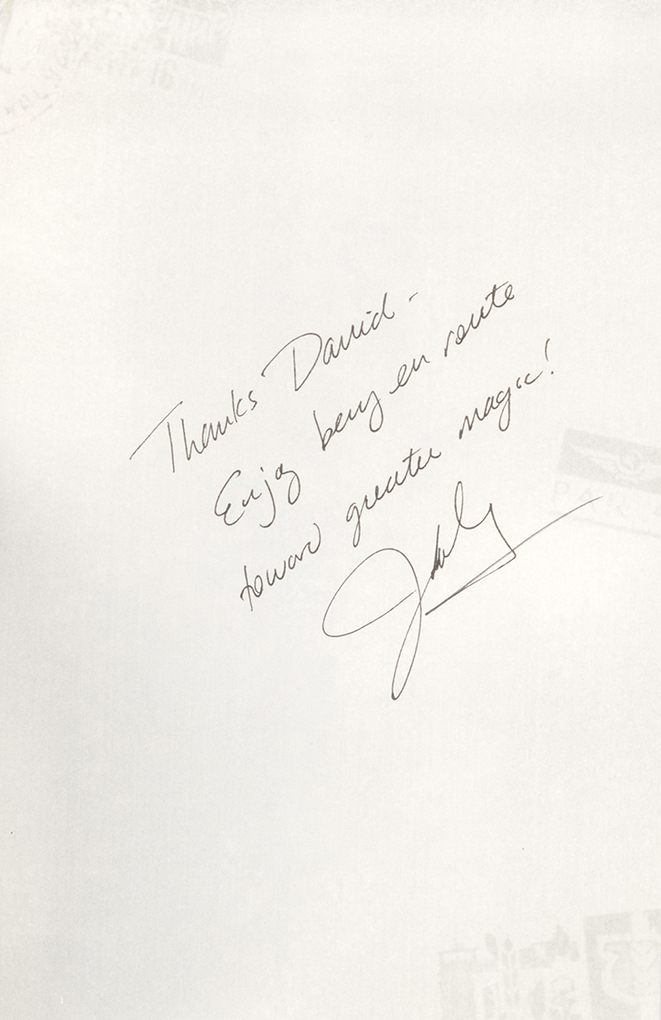 Thanks David -
Enjoy being en route
toward greater magic!
PAR A